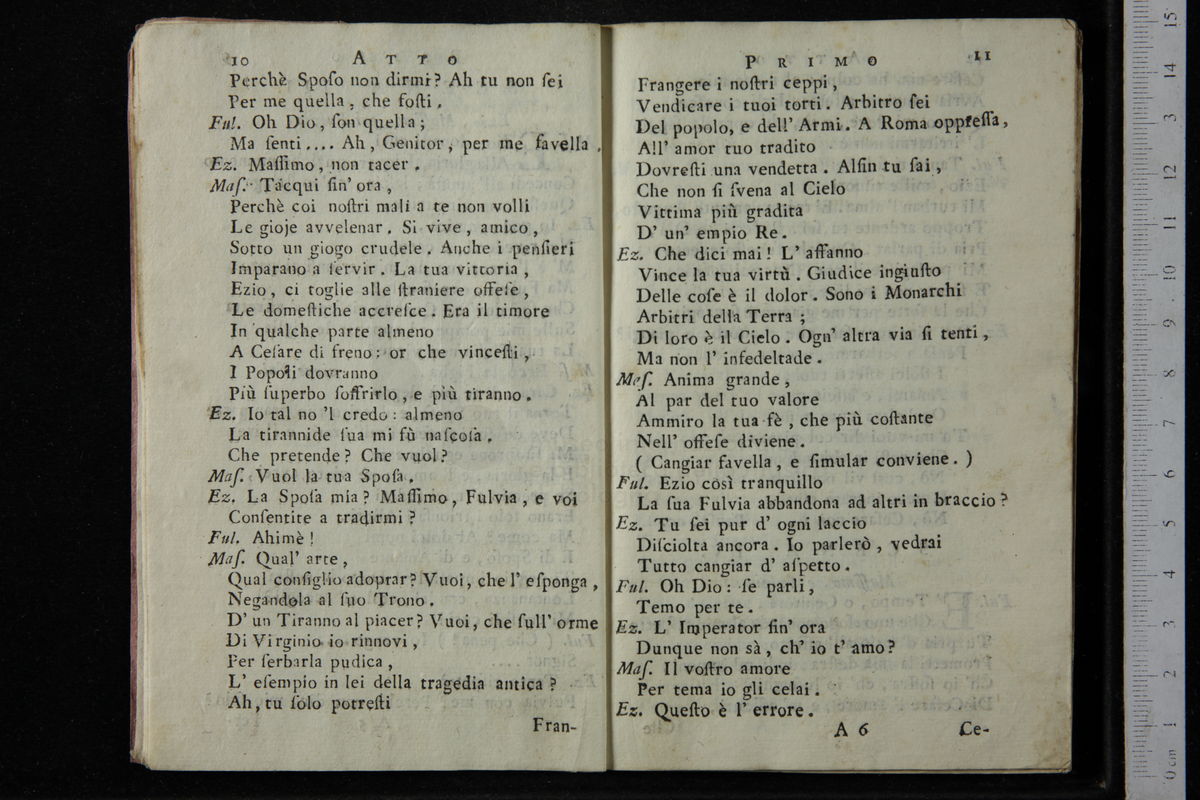 10 ATTO
Perchè Spoſo non dirmi? Ah tu non ſei
Per me quella, che foſti.
Ful. Oh Dio, ſon quella;
Ma ſenti.... Ah, Genitor, per me favella.
Ez. Maſſimo, non tacer.
Maſ. Tacqui ſin' ora,
Perchè coi noſtri mali a te non volli
Le gioje avvelenar. Si vive, amico,
Sotto un giogo crudele. Anche i penſieri
Imparano a ſervir. La tua vittoria,
Ezio, ci toglie alle ſtraniere offeſe,
Le domeſtiche accreſce. Era il timore
In qualche parte almeno
A Ceſare di freno: or che vinceſti,
I Popoli dovranno
Più ſuperbo ſoffrirlo, e più tiranno.
Ez. Io tal no 'l credo: almeno
La tirannide ſua mi fù naſcoſa.
Che pretende? Che vuol?
Maſ. Vuol la tua Spoſa.
Ez. La Spoſa mia? Maſſimo, Fulvia, e voi
Conſentite a tradirmi?
Ful. Ahimè!
Maſ. Qual' arte,
Qual conſiglio adoprar? Vuoi, che l' eſponga,
Negandola al ſuo Trono.
D' un Tiranno al piacer? Vuoi, che ſull' orme
Di Virginio io rinnovi,
Per ſerbarla pudica,
L' eſempio in lei della tragedia antica?
Ah, tu ſolo potreſti
Fran-
PRIMO 11
Frangere i noſtri ceppi,
Vendicare i tuoi torti. Arbitro ſei
Del popolo, e dell' Armi. A Roma oppreſſa,
All' amor tuo tradito
Dovreſti una vendetta. Alfin tu ſai,
Che non ſi ſvena al Cielo
Vittima più gradita
D' un' empio Re.
Ez. Che dici mai! L' affanno
Vince la tua virtù. Giudice ingiuſto
Delle coſe è il dolor. Sono i Monarchi
Arbitri della Terra;
Di loro è il Cielo. Ogn' altra via ſi tenti,
Ma non l' infedeltade.
Maſ. Anima grande,
Al par del tuo valore
Ammiro la tua fè, che più coſtante
Nell' offeſe diviene.
(Cangiar favella, e ſimular conviene.)
Ful. Ezio così tranquillo
La ſua Fulvia abbandona ad altri in braccio?
Ez. Tu ſei pur d' ogni laccio
Diſciolta ancora. Io parlerò, vedrai
Tutto cangiar d' aſpetto.
Ful. Oh Dio: ſe parli,
Temo per te.
Ez. L' Imperator ſin' ora
Dunque non sà, ch' io t' amo?
Maſ. Il voſtro amore
Per tema io gli celai.
Ez. Queſto è l' errore.
A 6 Ce-
0 cm 1 2 3 4 5 6 7 8 9 10 11 12 13 14 15